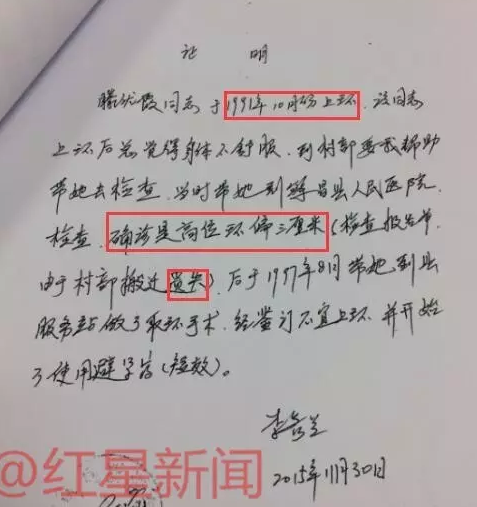 证 明
同志于1991年10月份上环，该同志
上环后总觉得身体不舒服，到村部要我帮助
带她去检查，当时带她到县人民医院
检查，确诊是高位环偏三厘米（检查报告单
由于村部搬迁遗失），后于1997年8月带她到县
服务站做了取环手术，经鉴订不宜上环，并开始
了使用避孕药（短效）。
李
2015年11月30日
@红星新闻